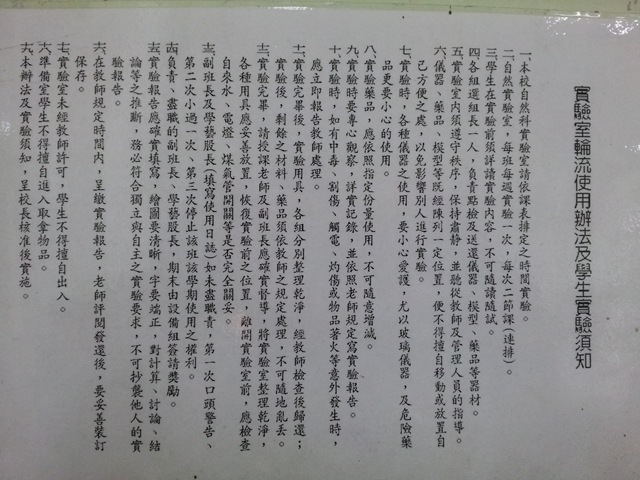 實驗室輪流使用辦法及學生實驗須知
一、本校自然科實驗室請依課表排定之時間實驗。
二、自然實驗室，每班每週實驗一次，每次二節課(連排)。
三、學生在實驗前須詳讀實驗內容，不可隨讀隨試。
四、各組選組長一人，負責點檢及送還儀器、模型、藥品等器材。
五、實驗室內須遵守秩序，保持肅靜，並聽從教師及管理人員的指導。
六、儀器、藥品、模型等既經陳列一定位置，便不得擅自移動或放置自
己方便之處，以免影響別人進行實驗。
七、實驗時，各種儀器之使用，要小心愛護，尤以玻璃儀器，及危險藥
品更要小心的使用。
八、實驗藥品，應依照指定份量使用，不可隨意增減。
九、實驗時要專心觀察，詳實記錄，並依照老師規定寫實驗報告。
十、實驗時，如有中毒、割傷、觸電、灼傷或物品著火等意外發生時，
應立即報告教師處理。
十一、實驗完畢後，實驗用具，各組分別整理乾淨，經教師檢查後歸還；
實驗後，剩餘之材料、藥品須依教師之規定處理，不可隨地亂丟。
十二、實驗完畢，請授課老師及副班長應確實督導，將實驗室整理乾淨，
各種用具應妥善放置，恢復實驗前之位置，離開實驗室前，應檢查
自來水、電燈、煤氣管開關等是否完全關妥。
十三、副班長及學藝股長(填寫使用日誌)如未盡職責，第一次口頭警告、
第二次小過一次、第三次停止該班該學期使用之權利。
十四、負責、盡職的副班長、學藝股長，期末由設備組簽請獎勵。
十五、實驗報告應確實填寫，繪圖要清晰，字要端正，對計算、討論、結
論等之推斷，務必符合獨立與自主之實驗要求，不可抄襲他人的實
驗報告。
十六、在教師規定時間內，呈繳實驗報告，老師評閱發還後，要妥善裝訂
保存。
十七、實驗室未經教師許可，學生不得擅自出入。
十八、準備室學生不得擅自進入取拿物品。
十九、本辦法及實驗須知，呈校長核准後實施。